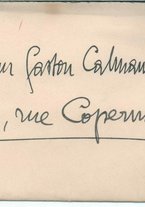 ur Gaston Calman
, rue Copern